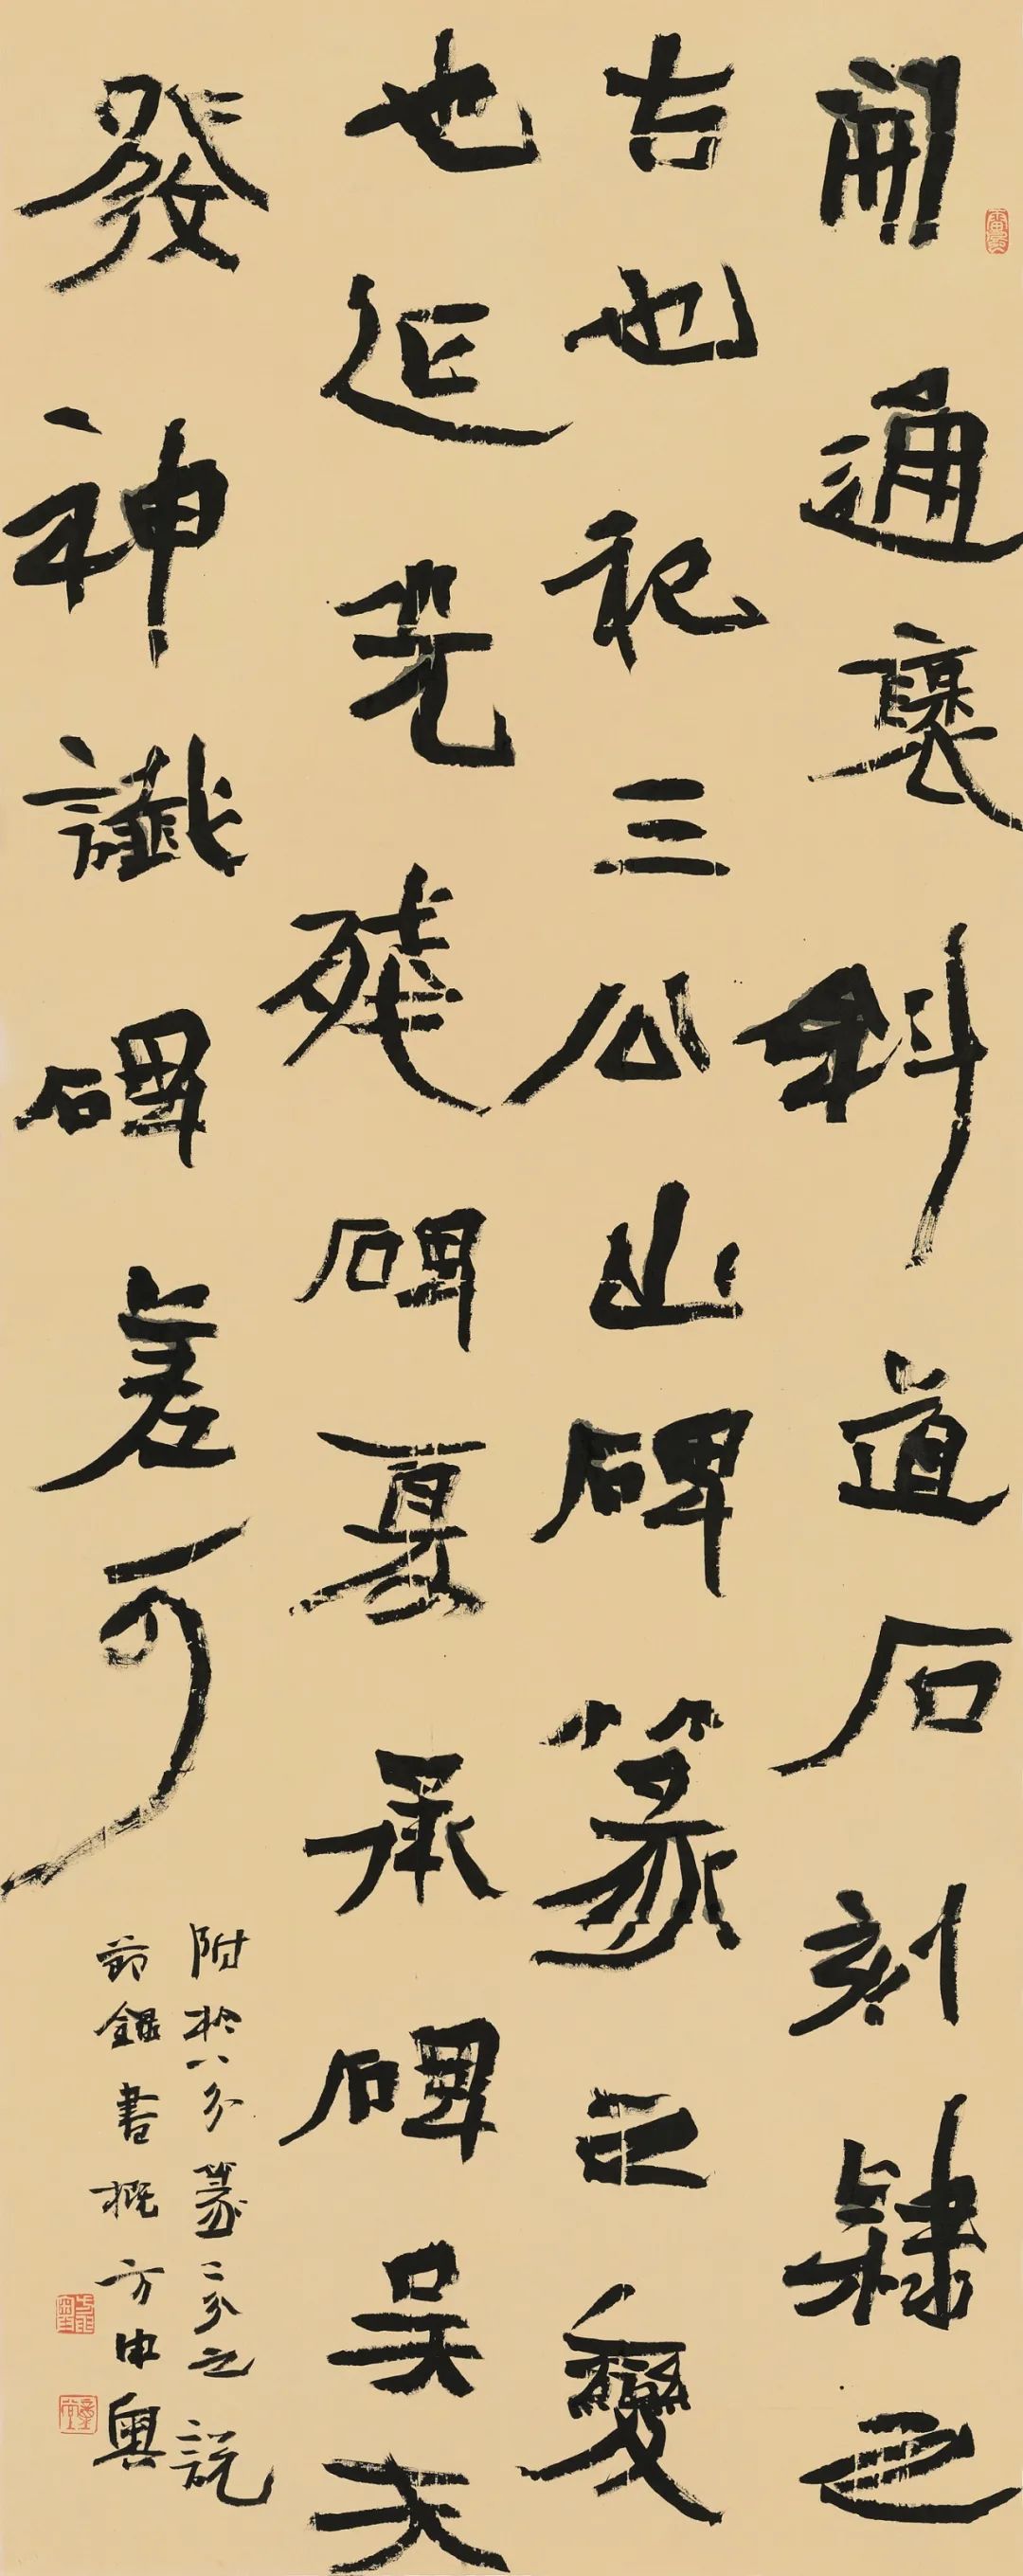 開通褒斜道石刻隸之
古也祀三公山碑篆之變
也延光殘碑夏承碑吳天
發神讖碑差可
附於八分篆二分之說
節錄書概方申奧